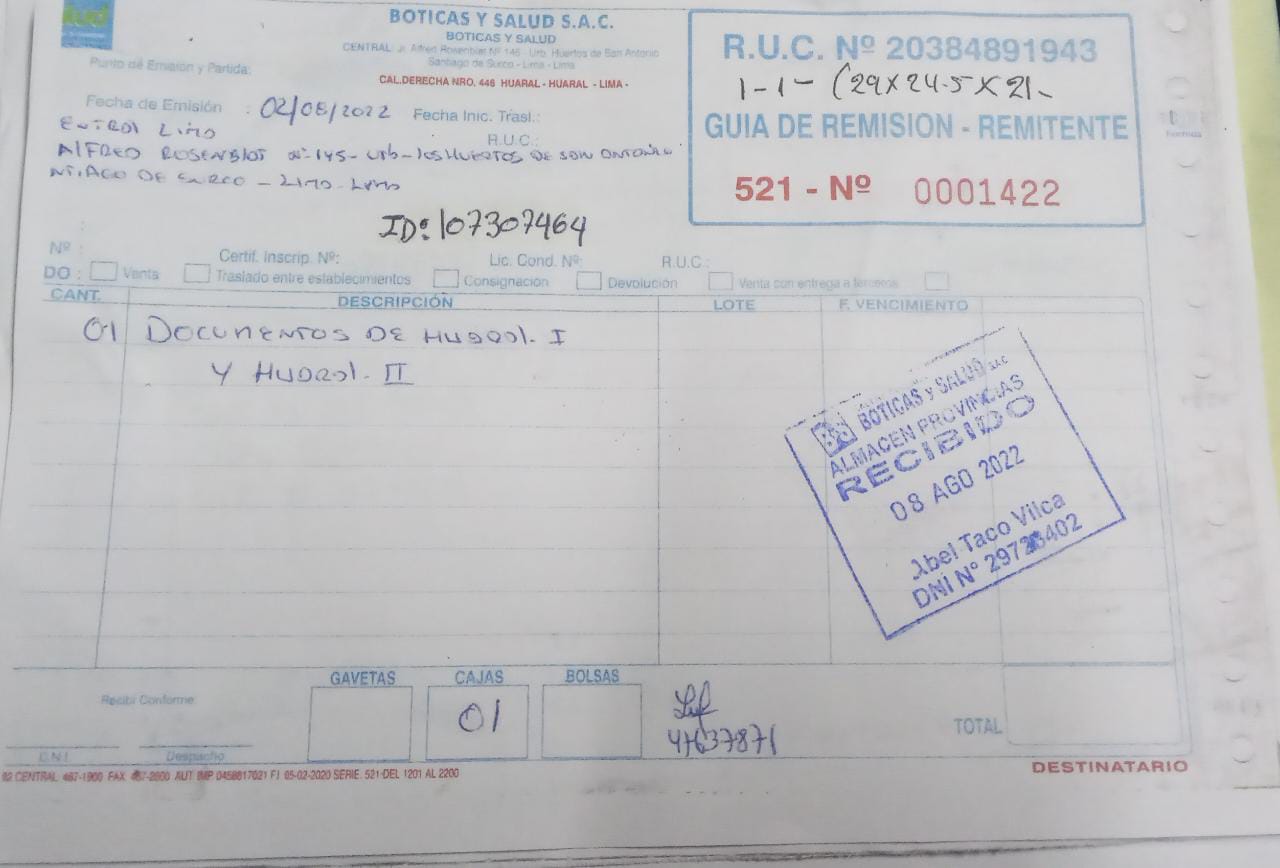 BOTICAS Y SALUD S.A.C.
BOTICAS Y SALUD
CENTRAL: Jr. Alfred Rosenblat Nº 146 - Urb. Huertos de San Antonio
Santiago de Surco - Lima - Lima
CAL.DERECHA NRO. 446 HUARAL - HUARAL - LIMA -
Punto de Emisión y Partida:
Fecha de Emisión : 02/08/2022 Fecha Inic. Trasl.:
R.U.C. Nº 20384891943
1-1- (29x24.5x21-
GUIA DE REMISION - REMITENTE
521 - Nº 0001422
R.U.C.:
ALFRED ROSENBLOT Nº-145- Urb- los HUERTOS DE SAN ANTONIO
NTIAGO DE SURCO - LIMA - LIMA
ID: 107307464
Nº : Certif. Inscrip. Nº: Lic. Cond. Nº: R.U.C.:
DO : Venta Traslado entre establecimientos Consignación Devolución Venta con entrega a terceros
CANT. DESCRIPCIÓN LOTE F. VENCIMIENTO
01 DOCUMENTOS DE HUARAL. I
Y HUARAL. II
BS BOTICAS y SALUD SAC
ALMACEN PROVINCIAS
RECIBIDO
08 AGO 2022
Abel Taco Vilca
DNI Nº
GAVETAS CAJAS BOLSAS
Recibi Conforme
01
41637871
TOTAL
D.N.I. Despacho
CENTRAL 467-1900 FAX 467-2800 AUT IMP 0458817021 F.I 05-02-2020 SERIE. 521-DEL 1201 AL 2200
DESTINATARIO